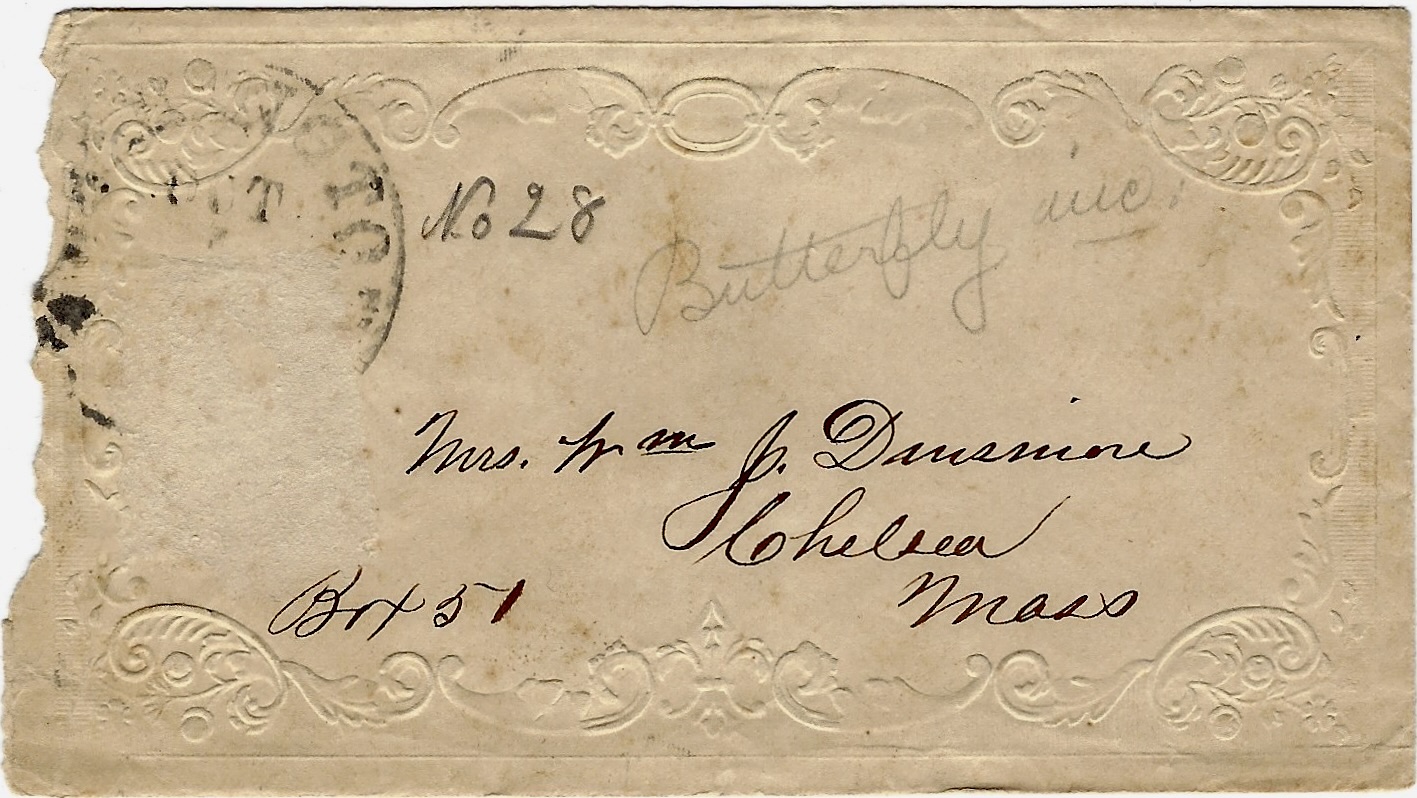 OCT
No 28
Butterfly inc.
Mrs. Wm J. Dunsmore
Chelsea
Mass
Box 51